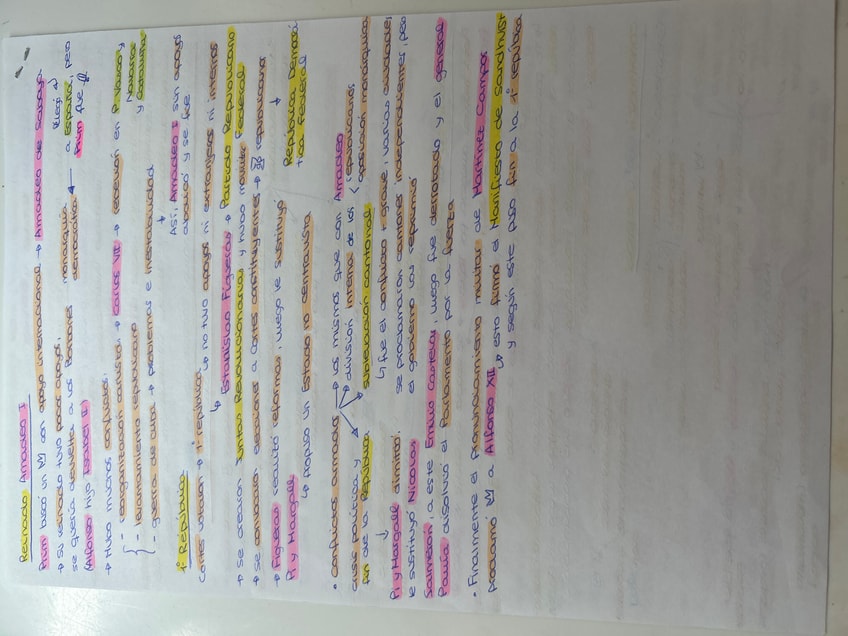 Reinado Amadeo I
Prim buscó un con apoyo internacional → Amadeo de Saboya.
→ Su reinado tuvo pocos apoyos, monarquía llegó a
se quería devuelta a los Borbones democrática ← a España, pero
(Alfonso hijo Isabel II) Prim fue
→ Hubo muchos conflictos:
- reorganización carlista → Carlos VII → rebelión en P. Vasco y
- levantamiento republicano Navarra
- guerra de cuba → problemas e inestabilidad y Cataluña
Así, Amadeo I sin apoyo
abdicó y se fue
1ª República
Cortes votaron → 1ª república → no tuvo apoyos ni extranjeros ni internos
↳ Estanislao Figueras → Partido Republicano
→ Se crearon Juntas Revolucionarias y hubo Federal
→ Se convocaron elecciones a Cortes constituyentes → republicana
→ Figueras reformas, luego le sustituyó República Democrá-
Pi y Margall tica Federal
↳ Propuso un Estado no centralista
• Conflictos armados → los mismos que con Amadeo
crisis política y → división interna de los < republicanos
fin de la República oposición monárquica
→ sublevación cantonal
↳ fue el conflicto + grave, varias ciudades
Pi y Margall dimitió, se proclamaron cantones independientes, pero
le sustituyó Nicolás el gobierno los reprimió
Salmerón, a este Emilio Castelar, luego fue derrotado y el general
Pavía disolvió el Parlamento por la fuerza
• Finalmente el pronunciamiento militar de Martínez Campos
proclamó a Alfonso XII
↳ esto firmó el Manifiesto de Sandhurst
y según este puso fin a la 1ª república